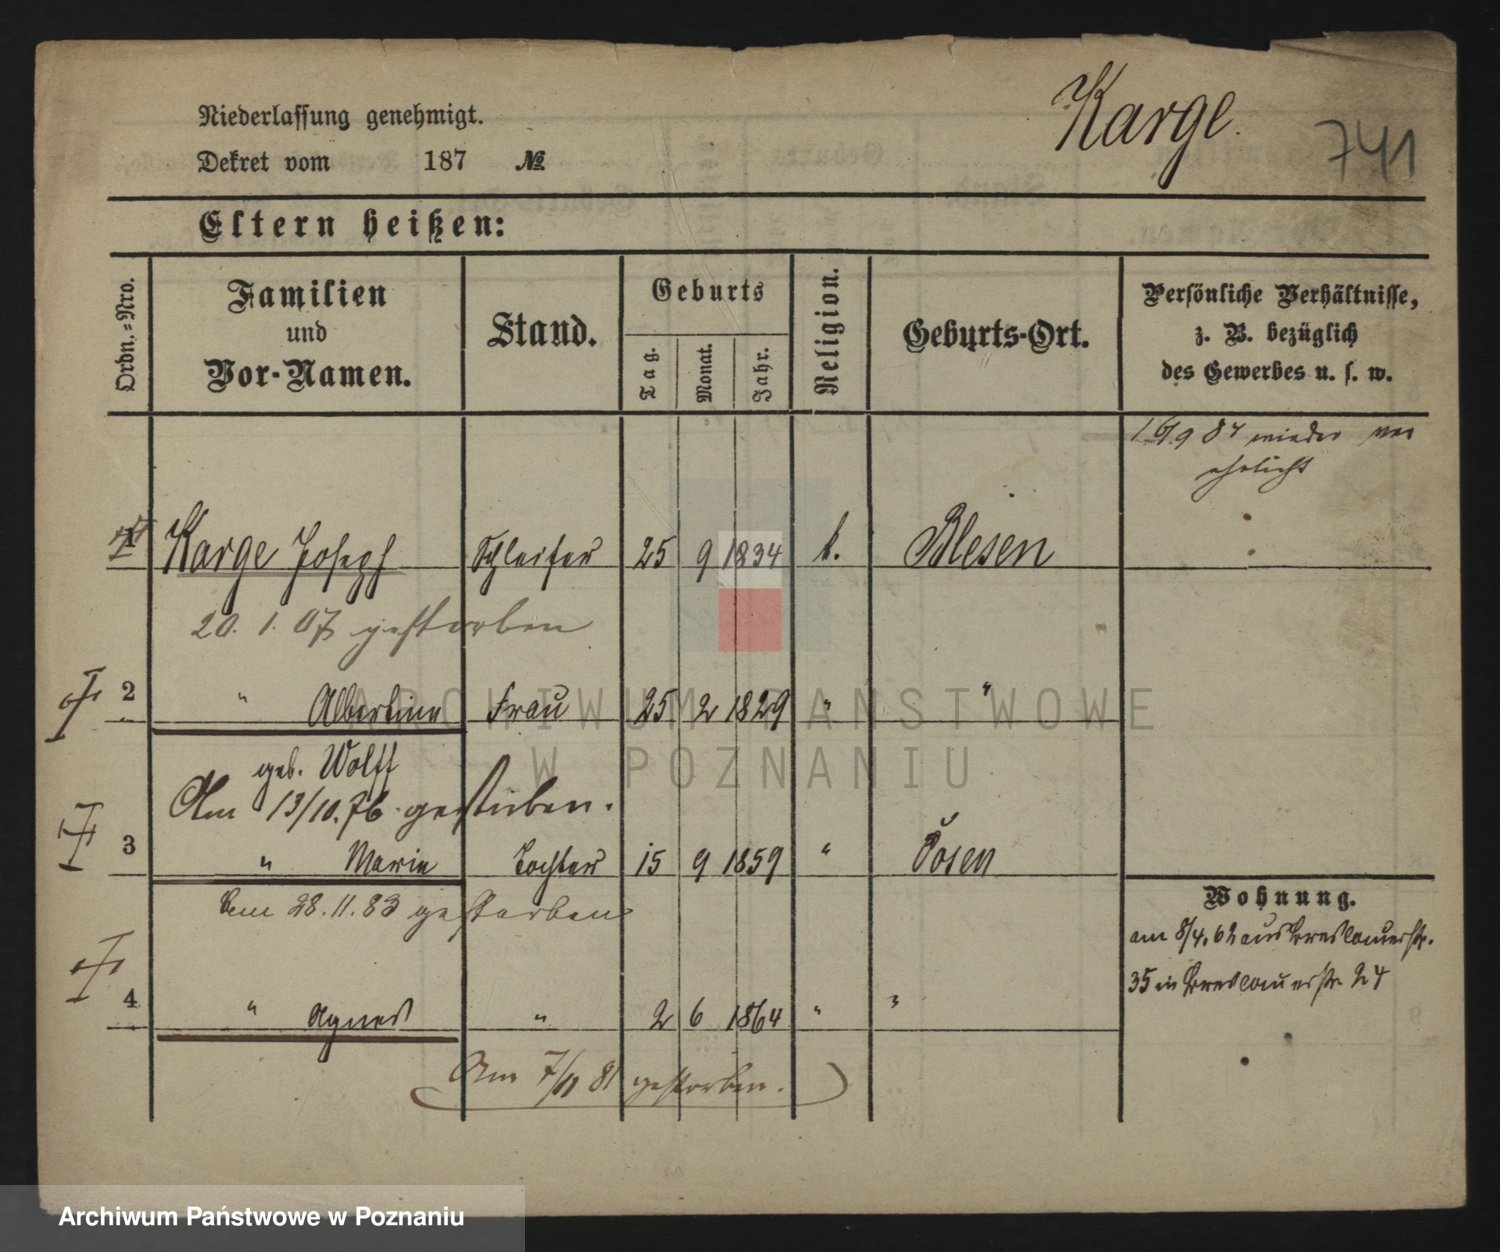 Karge.
741
Niederlassung genehmigt.
Dekret vom 187 №
Eltern heißen:
Ordn.-Nro.
Familien und Vor-Namen.
Stand.
Geburts
Tag. Monat. Jahr.
Religion.
Geburts-Ort.
Persönliche Verhältnisse,
z. B. bezüglich
des Gewerbes u. s. w.
16/9 84 wieder ver
ehelicht
1 Karge Joseph Schleifer 25 9 1834 k. Blesen
20. 1. 07 gestorben
2 " Albertine Frau 25 2 1829 " "
geb. Wolff
Am 13/10. 76. gestorben.
3 " Marie Tochter 15 9 1859 " Posen
Am 28.11.83 gestorben
4 " Agnes " 2 6 1864 " "
Am 7/11 81 gestorben.
Wohnung.
am 8/4. 62 aus Breslauerstr.
35 in Breslauerstr 24
ARCHIWUM PAŃSTWOWE
W POZNANIU
Archiwum Państwowe w Poznaniu